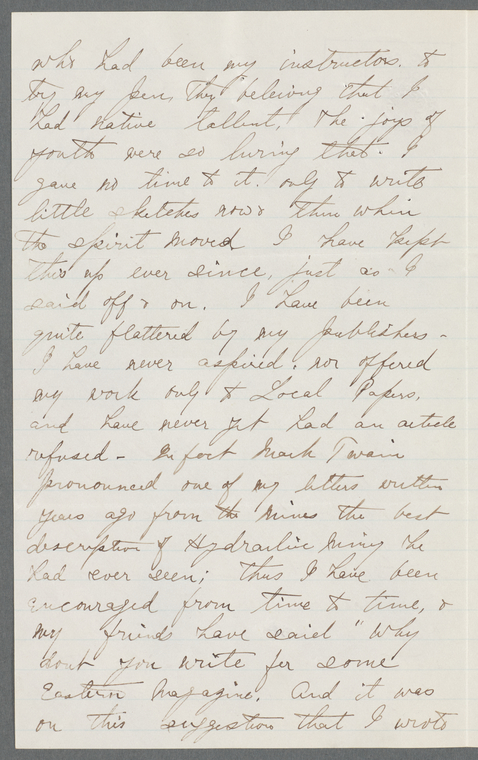 who had been my instructors. to
try my pen, they beleiving that I
had native tallent. The joys of
youth were so luring that I
gave no time to it. only to write
little sketches now & then when
the spirit moved I have kept
this up ever since, just as I
said off & on. I have been
quite flattered by my publishers -
I have never aspired, nor offered
my work only to Local Papers,
and have never yet had an article
refused - In fact Mark Twain
pronounced one of my letters written
years ago from the mines the best
description of Hydraulic Mining he
had ever seen; thus I have been
encouraged from time to time, &
my friends have said "Why
dont you write for some
Eastern Magazine. And it was
on this suggestion that I wrote